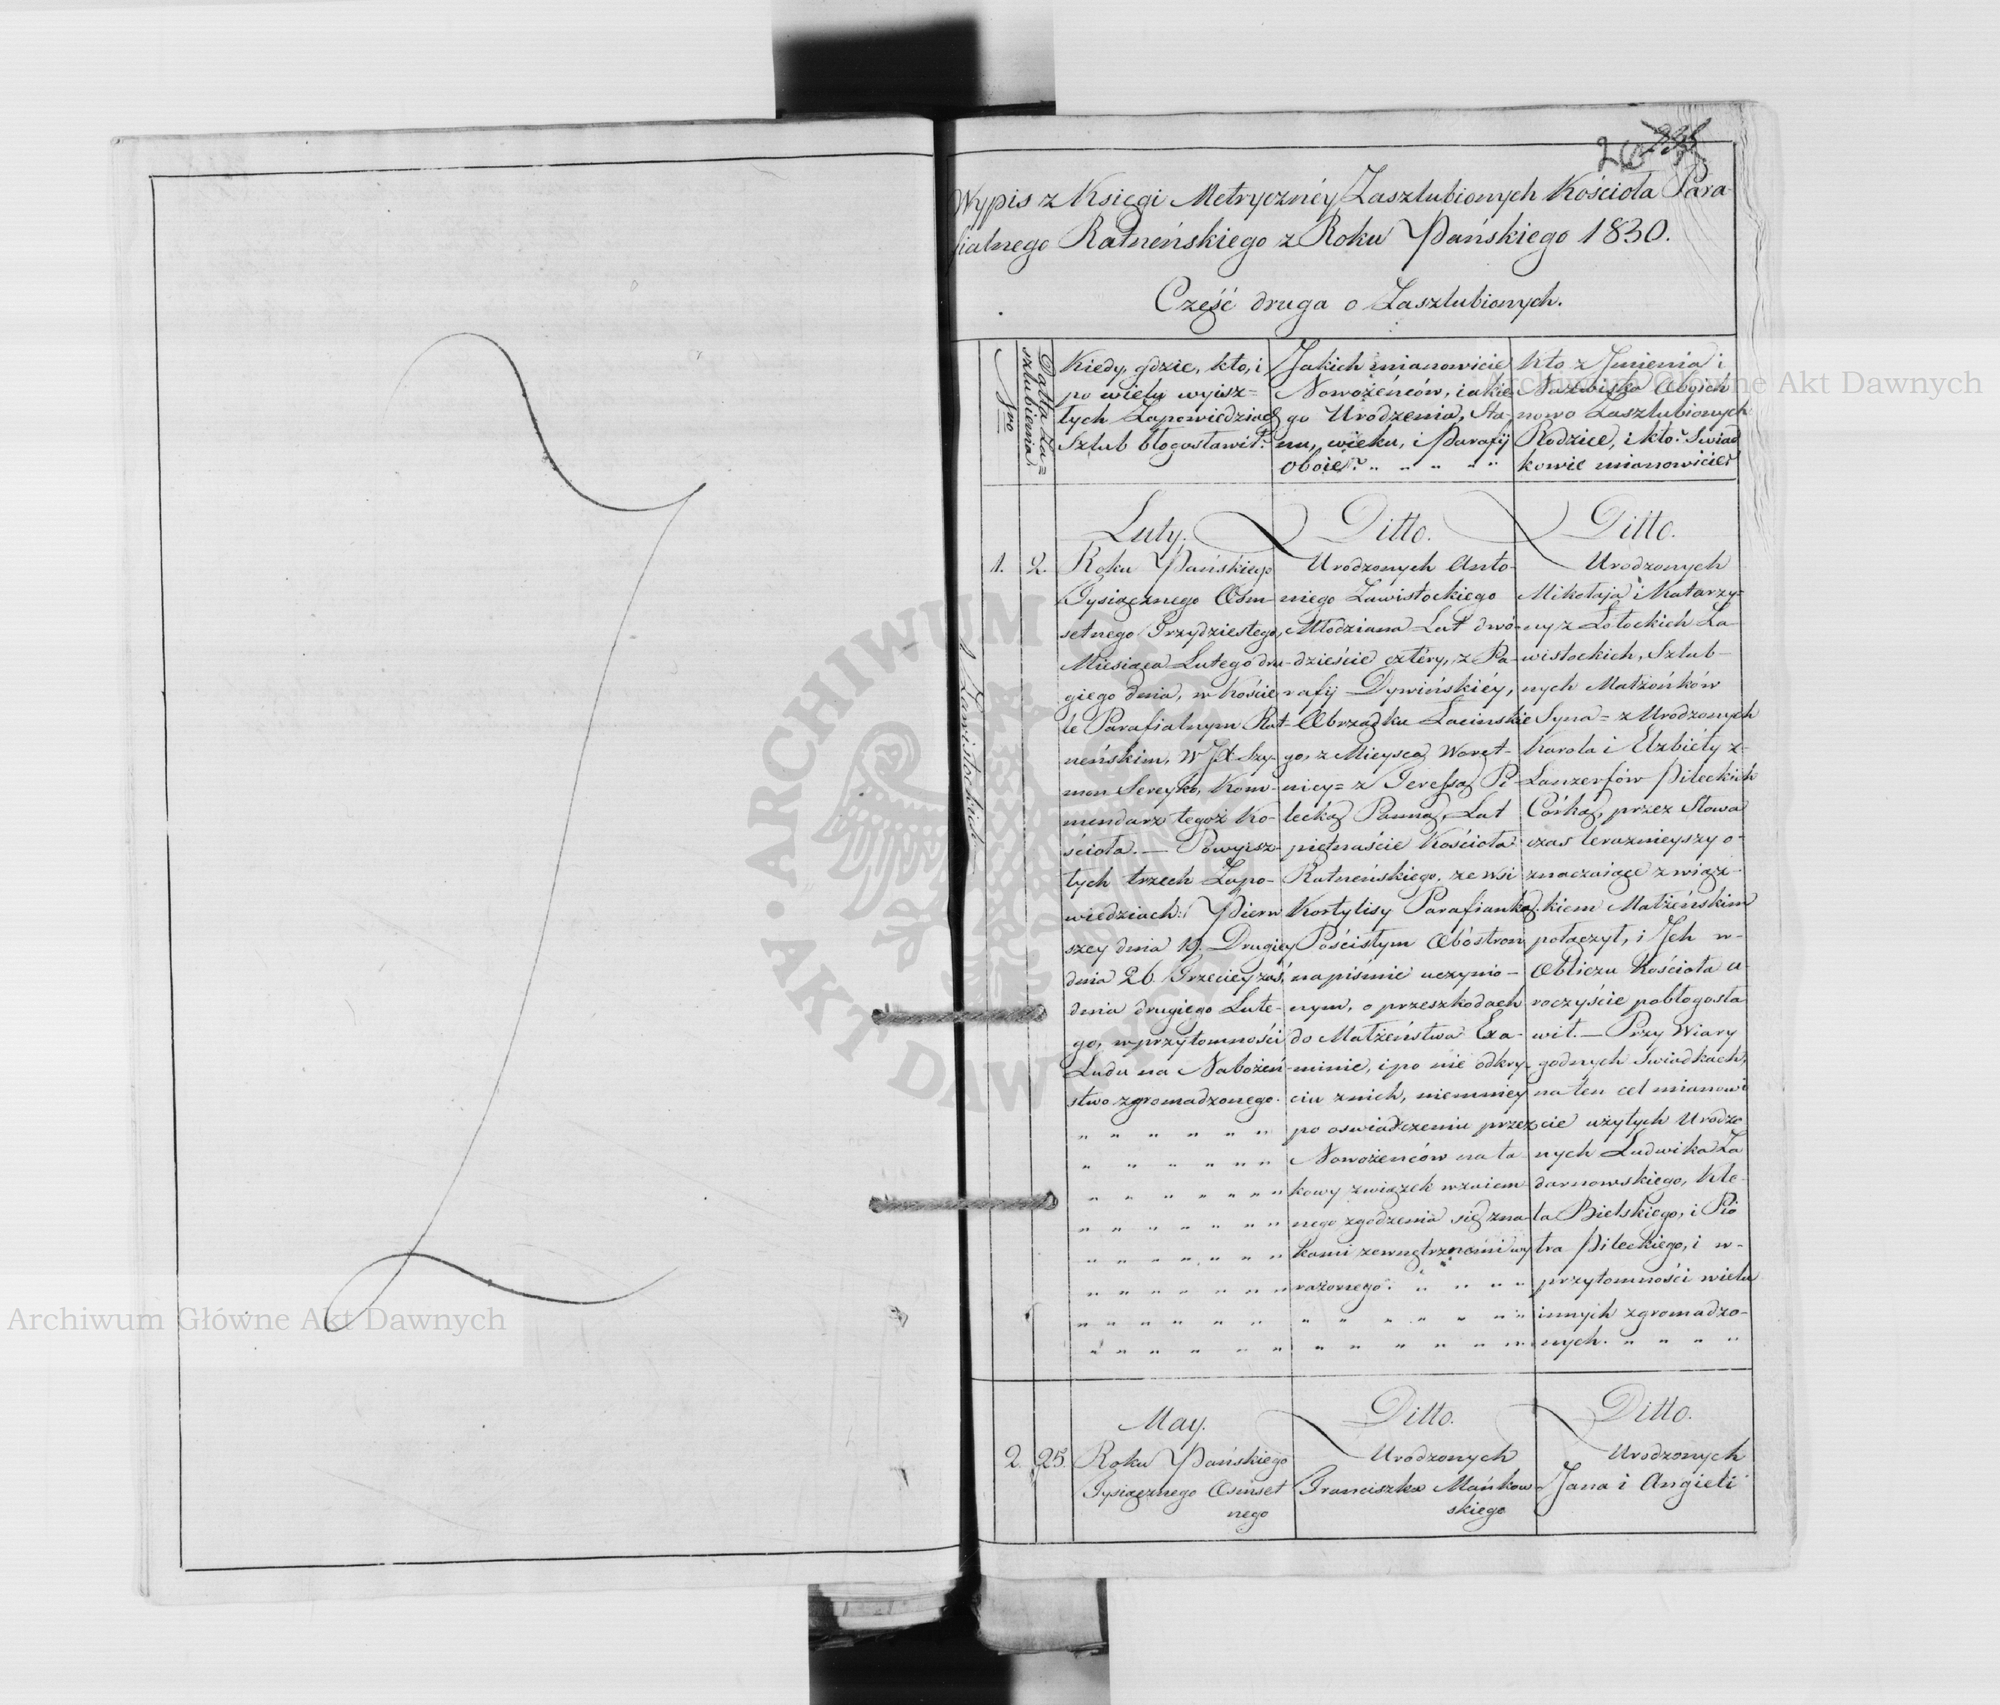 Wypis z Księgi Metrycznéy Zaszlubionych Kościoła Para-
fialnego Ratneńskiego z Roku Pańskiego 1830.
Część druga o Zaszlubionych.
Nro
Datta Za=
szlubienia
Kiedy, gdzie, kto, i
po wielu wyisz=
łych Zapowiedziach
Szlub błogosławił?
Jakich mianowicie
Nowożeńców, iakie
go Urodzenia, Sta-
nu, wieku, i Parafij
Oboie? " " " " "
Kto z Jmienia i
Nazwiska Obojch
nowo Zaszlubionych
Rodzice, i kto? Swiad
kowie mianowicie?
Luty.
1. 2. Roku Pańskiego
Tysiącznego Osm-
setnego Trzydziestego,
Miesiąca Lutego dru-
giego dnia, w Koście
le Parafialnym Rat-
neńskim, W JX Szy-
mon Sereyko, Kom-
mendarz tegoż Ko-
ścioła. — Powyisz-
łych trzech Zapo-
wiedziach: Pierw
szey dnia 19. Drugiey
dnia 26. Trzeciey zaś
dnia drugiego Lute-
go, w przytomności
Ludu na Nabożeń-
stwo zgromadzonego.
Ditto.
Urodzonych Anto-
niego Zawistockiego
Młodziana Lat dwó-
dzieście cztéry, z Pa-
rafij Dywińskiéy,
Obrządku Łacinskie
go, z Mieysca Woręt-
nicy= z Teressą Pi-
lecką Panną, Lat
piętnaście Kościoła
Ratneńskiego, ze wsi
Kortylisy Parafianką.
Pościsłym Obóstron
na piśmie uczynio-
nym, o przeszkodach
do Małżeństwa Exa-
minie, i po nie odkry-
ciu z nich, niemniey
po oswiadczeniu przez
Nowożeńców na ta
kowy związek wzaiem
nego zgodzenia się zna-
kami zewnętrznemi wy
rażonego. " " " "
Ditto.
Urodzonych
Mikołaja i Katarzy=
ny z Łotockich Za-
wistockich, Szlub-
nych Małżonków
Syna= z Urodzonych
Karola i Elzbiéty z-
Lanzerfów Pileckich
Córką, przez Słowa
czas teraznieyszy o-
znaczaiące związ-
kiem Małżeńskim
połączył, i Jch w-
Obliczu Kościoła u-
roczyście pobłogosła
wił. — Przy Wiary
godnych Swiadkach,
na ten cel mianowi
cie użytych Urodzo
nych Ludwika Za
darnowskiego, Kle-
ta Bielskiego, i Pio
tra Pileckiego, i w-
przytomności wielu
innych zgromadzo-
nych. " " " "
Zawistockich
May.
2. 25. Roku Pańskiego
Tysiącznego Osmset
nego
Ditto.
Urodzonych
Franciszka Mańkow
skiego
Ditto.
Urodzonych
Jana i Angieli
Archiwum Główne Akt Dawnych
Archiwum Główne Akt Dawnych